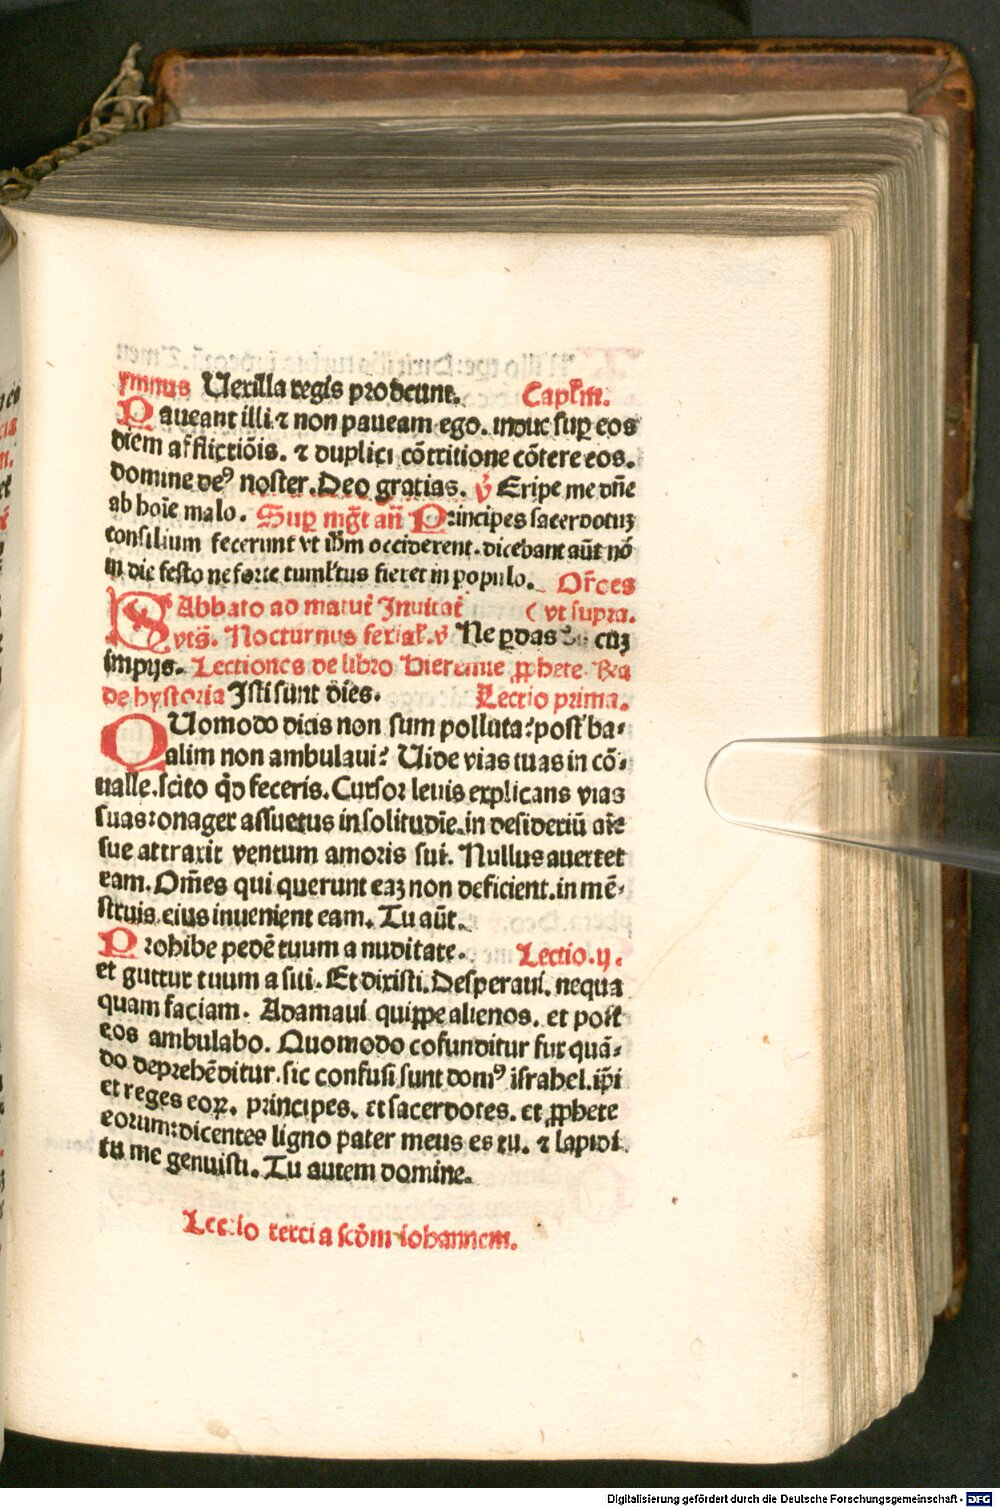 ymnus Uexilla regis prodeunt. Capl'm.
Paueant illi ⁊ non paueam ego. induc sup̱ eos
diem afflictiõis. ⁊ duplici cõtritione cõtere eos.
domine deꝰ noster. Deo gratias. v̾ Eripe me dñe
ab hoĩe malo. Sup̱ mg̃t añ Principes sacerdotuꝫ
consilium fecerunt vt ih̃m occiderent. dicebant aũt nõ
in die festo ne forte tumĺtus fieret in populo. Or̃ões
SAbbato ad matut̃ Inuitat̃ ( vt supra.
ytš. Nocturnus ferial̾. v̾ Ne ꝑdas cuꝫ
impijs. Lectiones de libro Hieremie ꝓphete.
de hystoria Isti sunt dies. Lectio prima.
QUomodo dicis non sum polluta: post ba-
alim non ambulaui? Uide vias tuas in cõ-
ualle. scito qd̾ feceris. Cursor leuis explicans vias
suas: onager assuetus in solitudĩe. in desideriũ aĩe
sue attraxit ventum amoris sui. Nullus auertet
eam. Om̃es qui querunt eaꝫ non deficient. in mẽ-
struis eius inuenient eam. Tu aũt.
Prohibe pedẽ tuum a nuditate. Lectio. ij.
et guttur tuum a siti. Et dixisti. Desperaui. nequa
quam faciam. Adamaui quippe alienos. et post
eos ambulabo. Quomodo cofunditur fur quã-
do deprehẽditur. sic confusi sunt domꝰ israhel. ip̃i
et reges eoꝝ. principes. et sacerdotes. et ꝓphete
eorum: dicentes ligno pater meus es tu. ⁊ lapidi.
tu me genuisti. Tu autem domine.
Lectio tercia scd̾m iohannem.
Digitalisierung gefördert durch die Deutsche Forschungsgemeinschaft - DFG